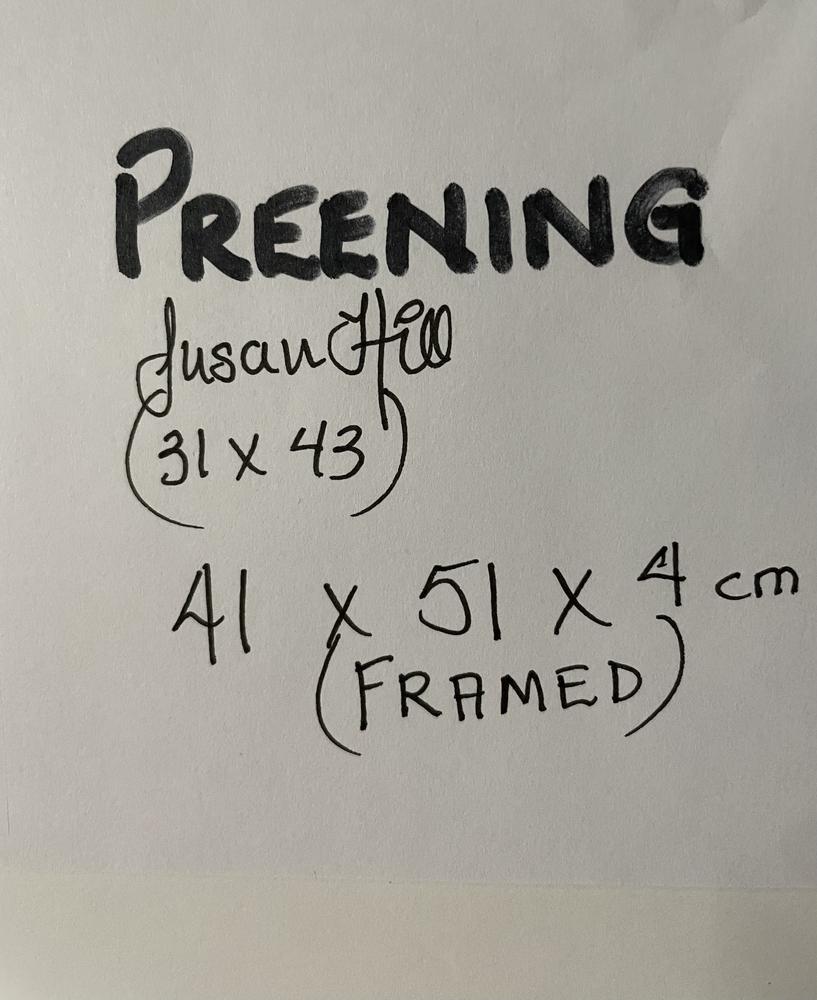 PREENING
Susan Hill
(31 x 43)
41 x 51 x 4 cm
(FRAMED)